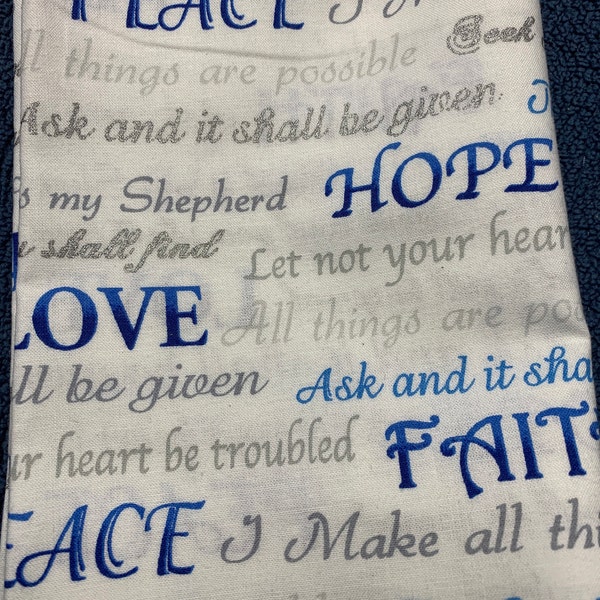 PEACE I
Seek
all things are possible
Ask and it shall be given.
is my Shepherd HOPE
shall find Let not your hear
LOVE All things are po
ll be given Ask and it sha
ur heart be troubled FAIT
EACE I Make all thi